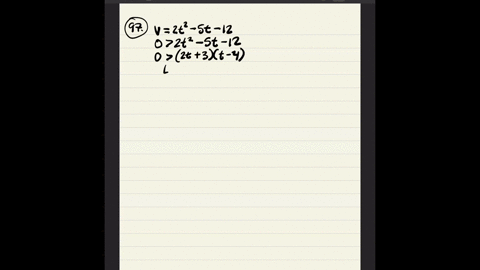 97.
V = 2t² - 5t - 12
0 > 2t² - 5t - 12
0 > (2t + 3)(t - 4)